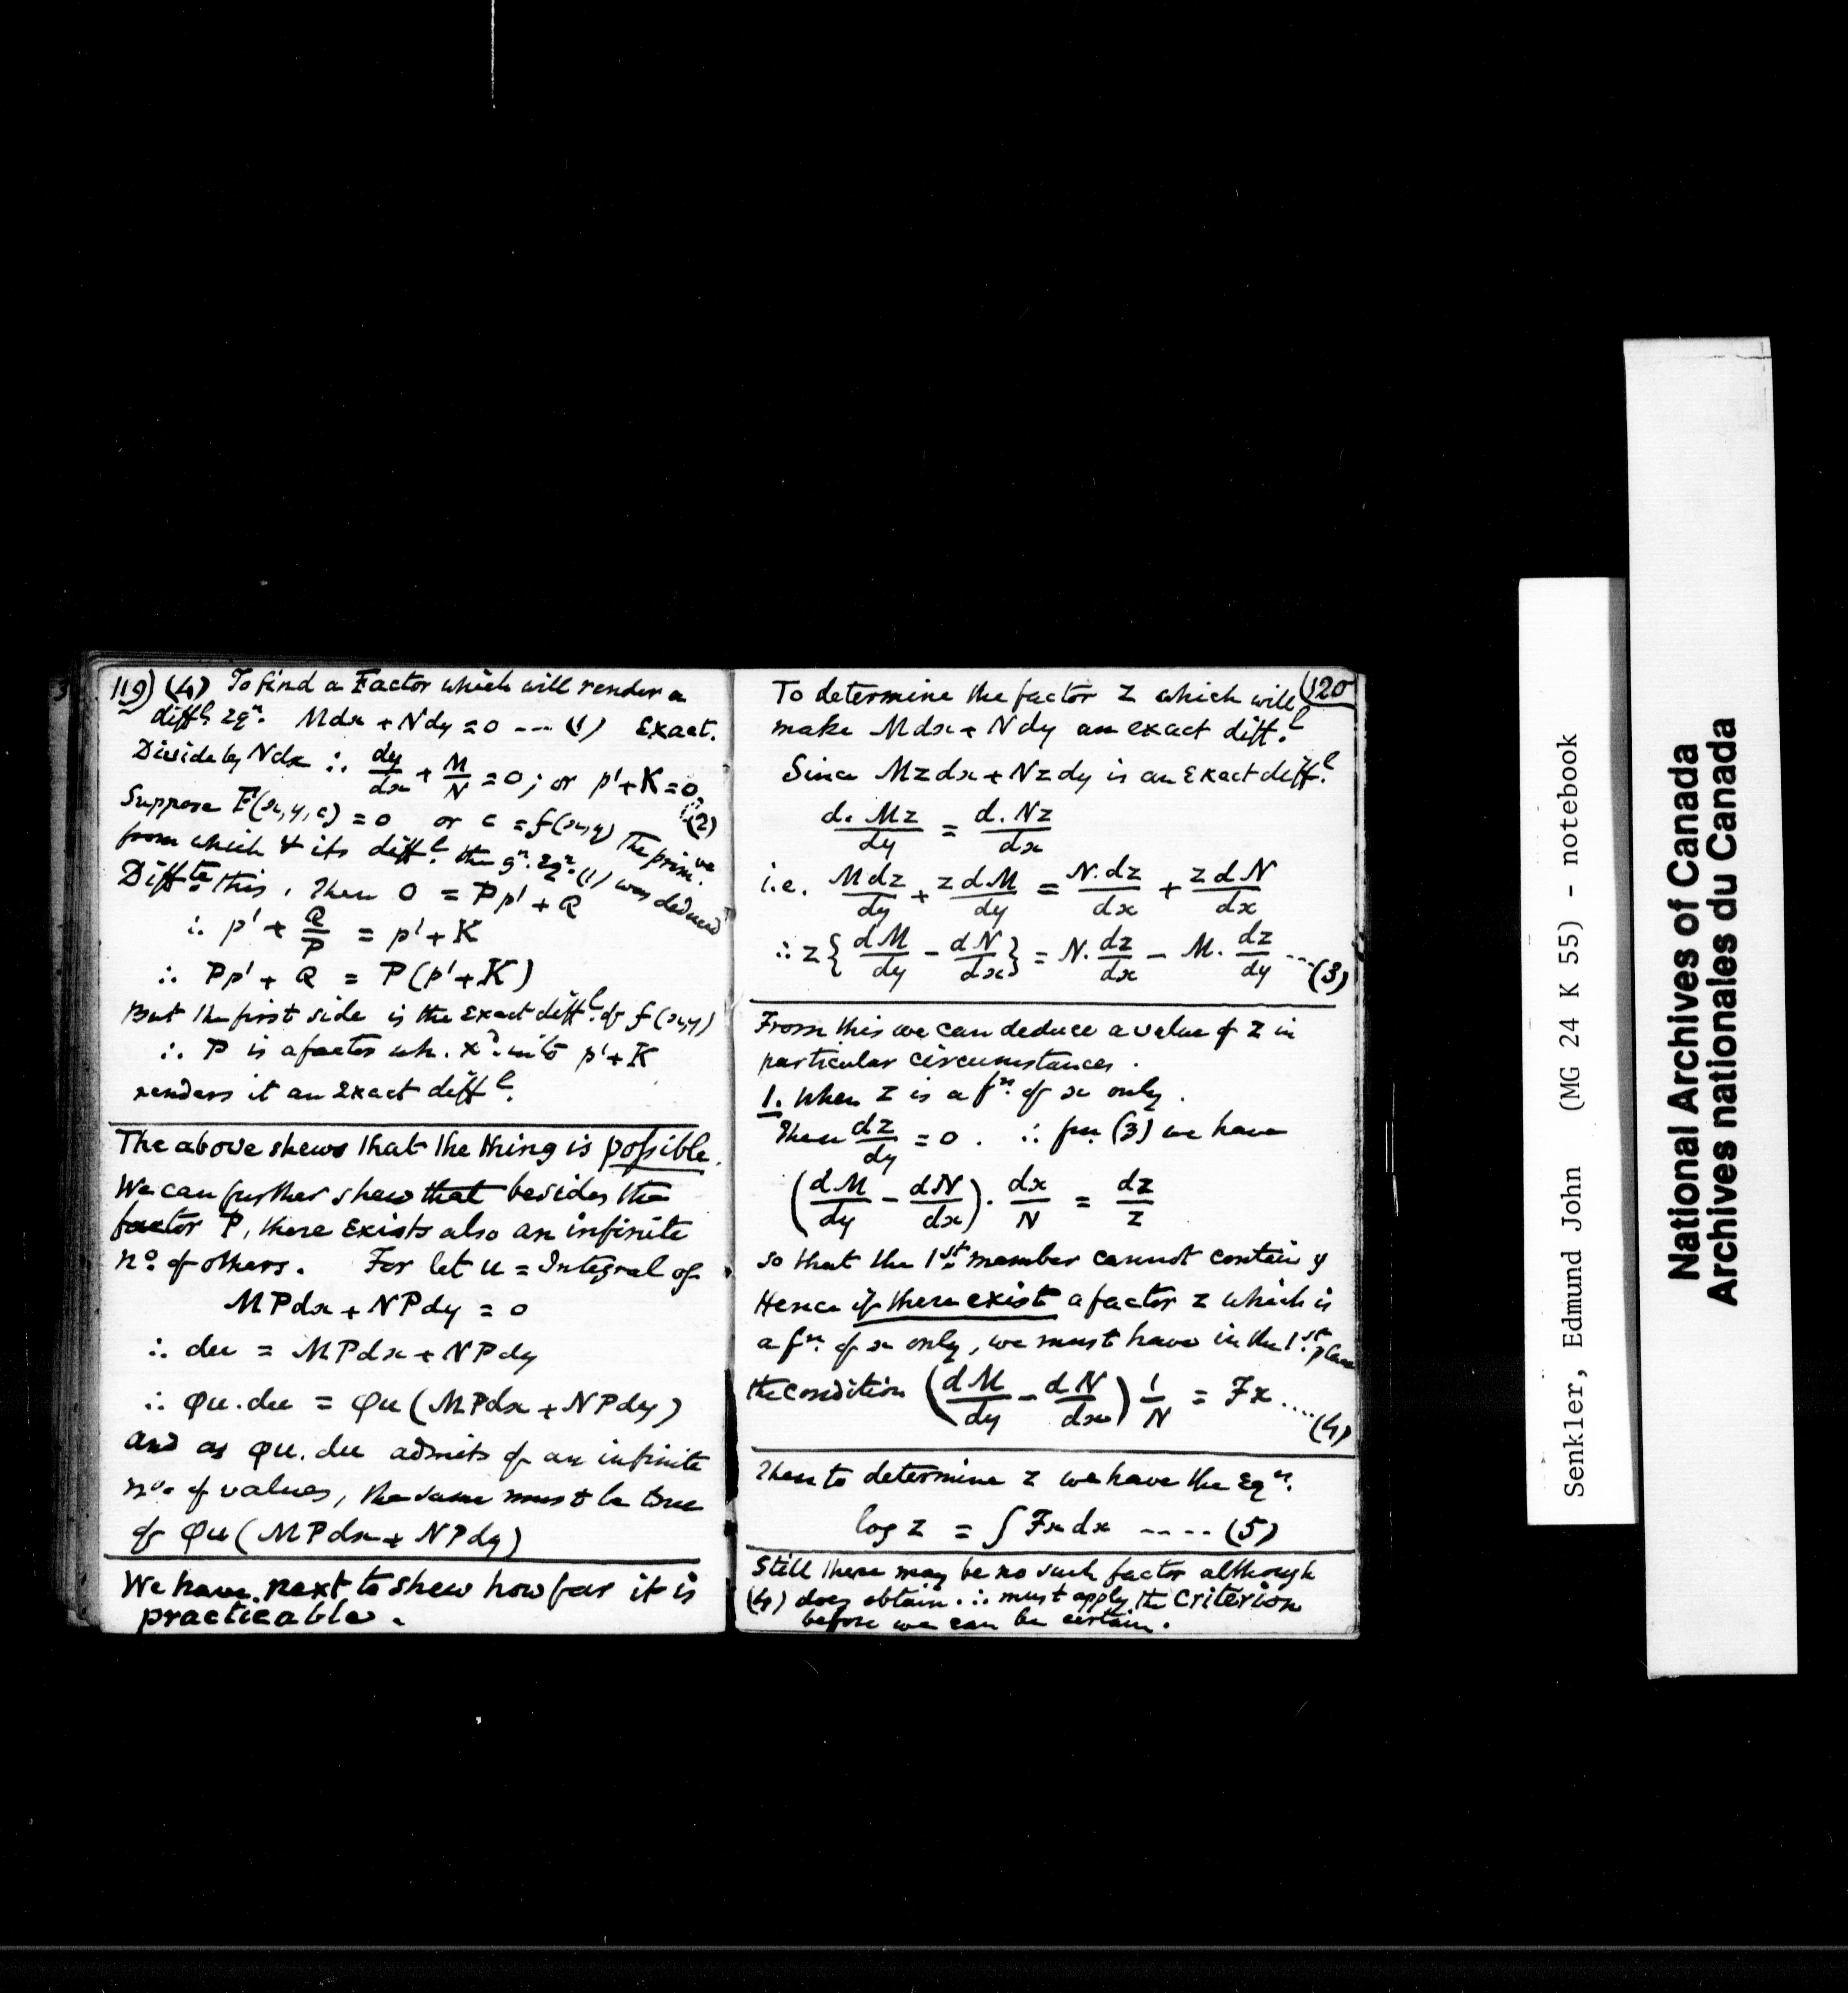 119) (4) To find a Factor which will render a
diffl. Eqn. Mdx + Ndy = 0 --- (1) Exact.
Divide by Ndx ∴ dy/dx + M/N = 0; or p' + K = 0,
(2)
Suppose F(x,y,c) = 0 or c = f(x,y) The primve.
from which & its diffl. the gn. Eqn. (1) was deduced
Diffte this, then 0 = Pp' + Q
∴ p' + Q/P = p' + K
∴ Pp' + Q = P(p' + K)
But the first side is the exact diffl. of f(x,y)
∴ P is a factor wh. xd. into p' + K
renders it an Exact diffl.
The above shews that the thing is possible.
We can further shew that besides the
factor P, there Exists also an infinite
no. of others. For let u = Integral of
MPdx + NPdy = 0
∴ du = MPdx + NPdy
∴ φu.du = φu(MPdx + NPdy)
and as φu.du admits of an infinite
no. of values, the same must be true
of φu(MPdx + NPdy)
We have next to shew how far it is
practicable.
120
To determine the factor z which will
make Mdx + Ndy an exact diff.l
Since Mzdx + Nzdy is an Exact diff.l
d.Mz/dy = d.Nz/dx
i.e. Mdz/dy + zdM/dy = N.dz/dx + zdN/dx
∴ z{dM/dy - dN/dx} = N.dz/dx - M.dz/dy ... (3)
From this we can deduce a value of z in
particular circumstances.
1. When z is a fn. of x only.
Then dz/dy = 0. ∴ fm (3) we have
(dM/dy - dN/dx).dx/N = dz/z
so that the 1st member cannot contain y
Hence if there exist a factor z which is
a fn. of x only, we must have in the 1st. place
the condition (dM/dy - dN/dx) 1/N = Fx .... (4)
Then to determine z we have the Eqn.
log z = ∫Fxdx ---- (5)
Still there may be no such factor although
(4) does obtain. ∴ must apply the criterion
before we can be certain.
Senkler, Edmund John (MG 24 K 55) - notebook
National Archives of Canada
Archives nationales du Canada